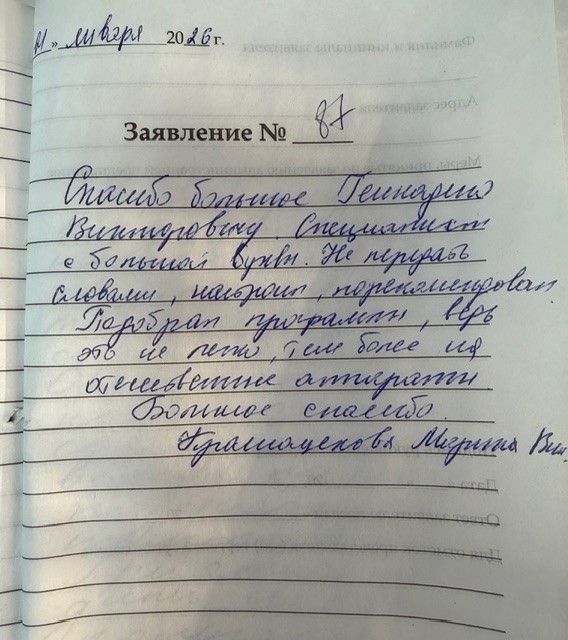 21 » января 2026 г.
Заявление № 87
Спасибо большое Геннадию
Викторовичу. Специалист
с большой буквы. Не передать
словами, настроил, порекомендовал
Подобрал программы, ведь
это не легко, тем более на
отечественные аппараты
Большое спасибо.
Марина Вик.